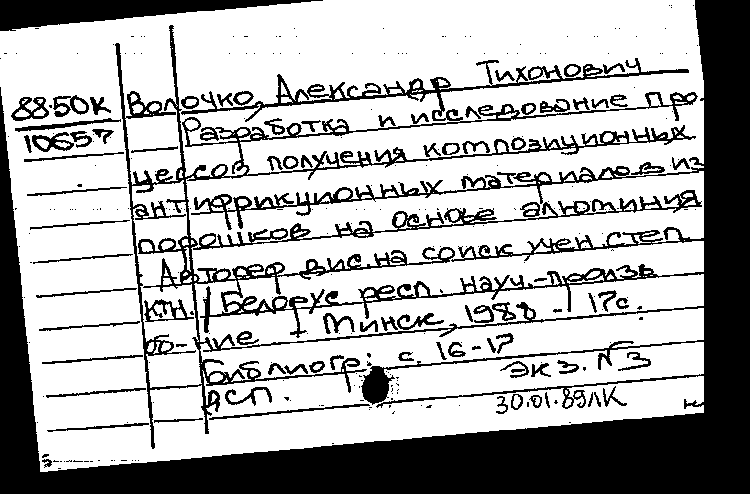 88-50к Волочко, Александр Тихонович
10657 Разработка и исследование про-
цессов получения композиционных
антифрикционных материалов из
порошков на основе алюминия
: Автореф дис. на соиск учен степ
ктн. / Белорус респ. науч.-произв
об-ние - Минск, 1988 - 17с.
Библиогр: с. 16-17
ДСП. экз. №3
30.01.89ЛК